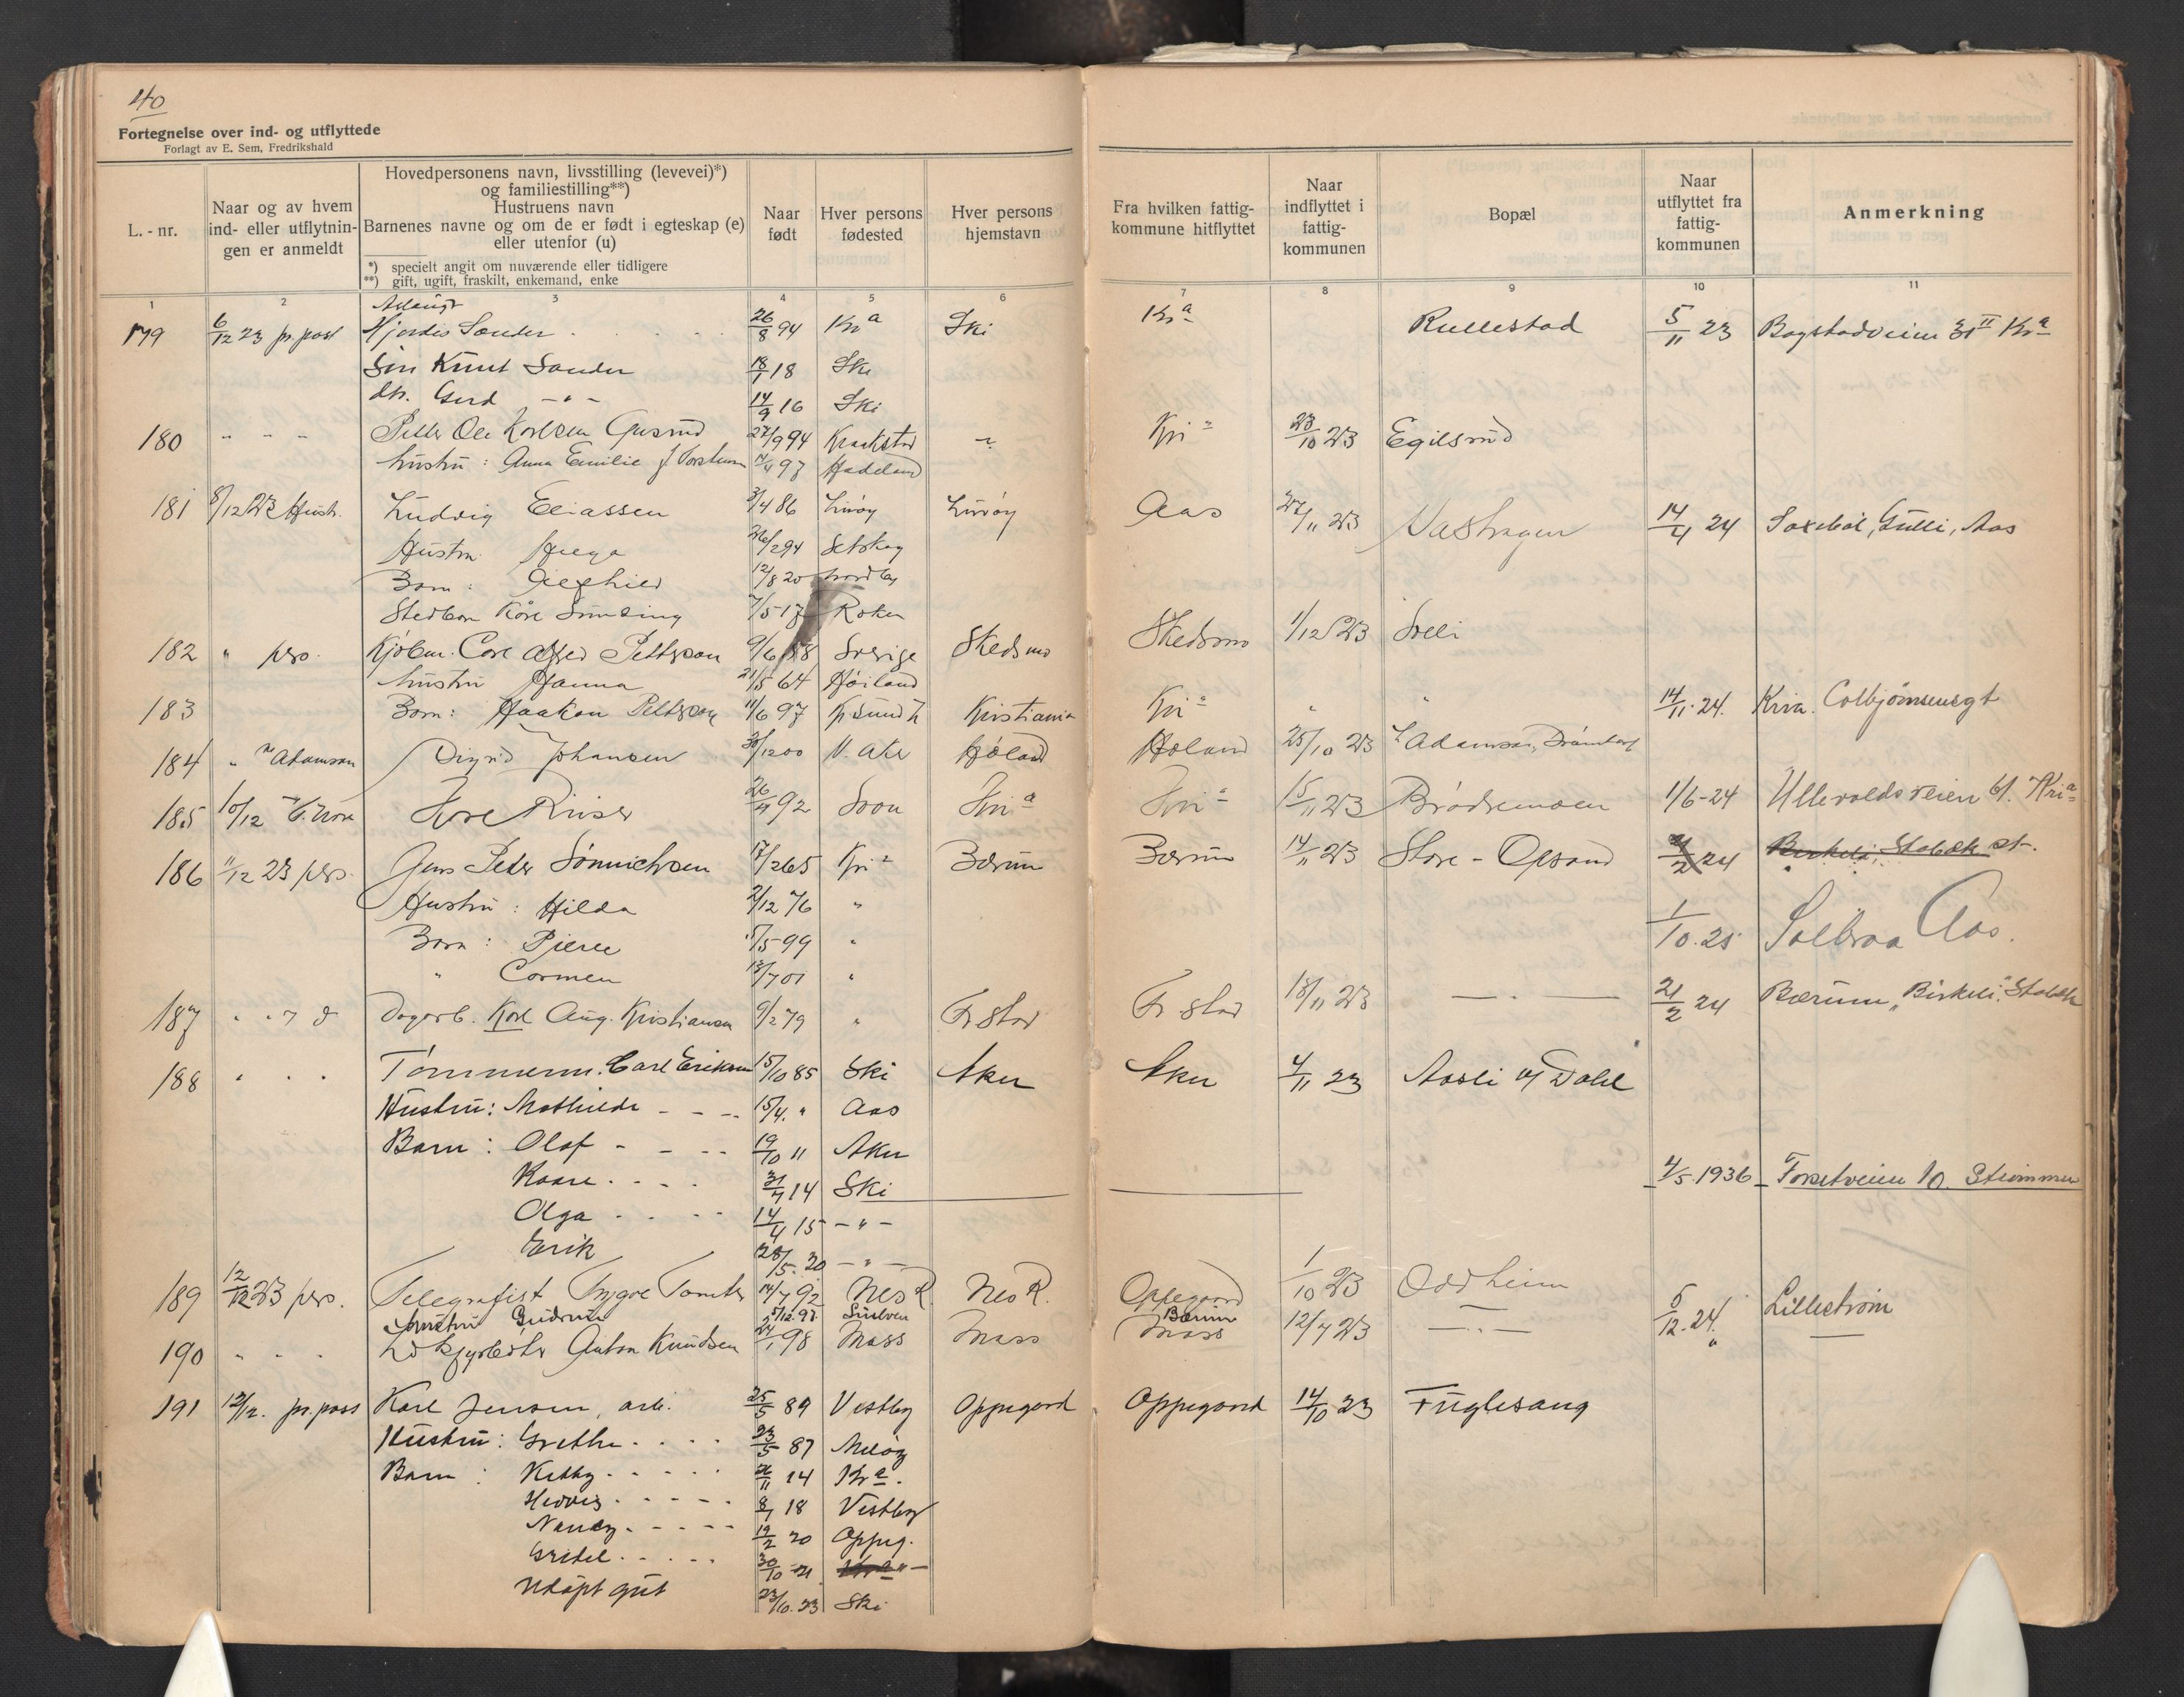 40
Fortegnelse over ind- og utflyttede
Forlagt av E. Sem, Fredrikshald
L.-nr.
Naar og av hvem ind- eller utflytningen er anmeldt
Hovedpersonens navn, livsstilling (levevei)*) og familiestilling**)
Hustruens navn
Barnenes navne og om de er født i egteskap (e) eller utenfor (u)
*) specielt angit om nuværende eller tidligere
**) gift, ugift, fraskilt, enkemand, enke
Naar født
Hver persons fødested
Hver persons hjemstavn
Fra hvilken fattigkommune hitflyttet
Naar indflyttet i fattigkommunen
Bopæl
Naar utflyttet fra fattigkommunen
Anmerkning
1 2 3 4 5 6 7 8 9 10 11
179 6/12 23 pr. post Hjordis Sander 26/8 94 Kra Ski Kra Rullestad 5/11 23 Bogstadveien 31 II Kra
Søn Knut Sander 18/1 18 Ski
dtr. Gerd - " - 14/9 16 Ski
180 " " " Petter Ole Karlsen Gusrud 27/9 94 Kraakstad " Kri a 23/10 23 Egilsrud
hustru: Anna Emilie 97 Hadeland
181 8/12 23 Hustr. Ludvig Eliassen 3/4 86 Lurøy Lurøy Aas 27/11 23 Vashagen 14/4 24 Saxebøl, Gulli, Aas
Hustru Helga 26/2 94 Setskog
Barn: Alfhild 12/8 20 Nordby
Stedbarn Kåre 7/5 17 Røken
182 " pers. Kjøbm. Carl Alfred Pettersson 9/6 58 Sverige Skedsmo Skedsmo 1/12 23 Solli
hustru Hanna 21/5 64 Høiland
183 Barn: Haakon Pettersson 11/6 97 Kr.sund N Kristiania Kri a " " 14/11. 24. Kria. Colbjørnsensgt
184 " Adamson Sigrid Johansen 30/12 00 V. Aker Høland Høland 25/10 23 Adamson, Drømtorp
185 10/12 Tore Riiser 26/4 92 Kri a Kri a 15/11 23 Brødremoen 1/6-24 Ullevoldsveien 61. Kria
186 11/12 23 pers. Jens Peter Sønnichsen 17/2 65 Kri a Bærum Bærum 14/11 23 Store - Opsand 2 24 Birkeli, Stabæk st.
Hustru: Hilda 2/12 76 "
1/10.25 Solbraa Aas.
Barn: Pierre 5/5 99 "
" Carmen 13/7 01 "
187 " " Dagarb. Karl Aug. Kristiansen 9/2 79 " Fr.stad Fr.stad 18/11 23 — " — 21/2 24 Bærum, "Birkeli", Stabæk
188 " " " Tømmerm. Carl Eriksen 15/10 85 Ski Aker Aker 4/11 23 Aasli v/ Dahl
Hustru: Mathilde - - - 15/4. " Aas
Barn: Olaf - - - - 19/10 11 Aker
Kaare. - - - 31/4 14 Ski 4/5.1936 Forsetveien 10 Strømmen
Olga - - - - 14/4 15 - " -
Erik 28/5. 20 - " -
189 12/12 23 pers. Telegrafist Trygve Tomter 14/7 92 Nes R. Nes R. Oppegaard 1/10 23 Oddheim 5/12.24. Lillestrøm
Hustru Gudrun 5/12.97.
Bærum
190 " " " Anton Knudsen 24/1 98 Moss Moss Moss 12/7 23 — " — "
191 12/12. pr. post Karl Jensen, arb. 25/5 89 Vestby Oppegaard Oppegaard 14/10 23 Fuglesang
Hustru: Grethe. - - - 23/5 87 Meløy
Barn: Kitty. - - - - 11 14 Kra.
Hedvig. - - - - 8/1 18 Vestby
Nancy. - - - - 19/2 20 Oppeg.
Gretel. - - - - 30/10 21 - " -
Udøpt gut 23/10.23 Ski